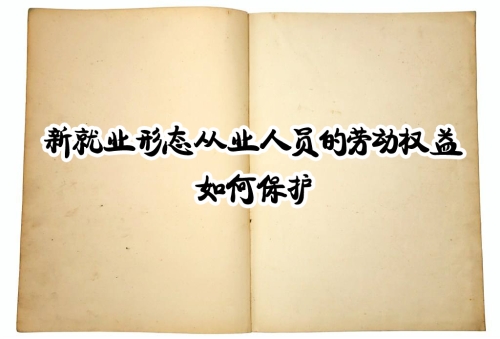 新就业形态从业人员的劳动权益
如何保护